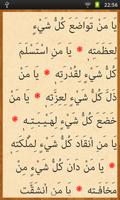 22:56
يا مَنْ تَواضَعَ كُلُّ شَيْءٍ
لِعَظَمَتِهِ * يا مَنِ اسْتَسْلَمَ
كُلُّ شَيْءٍ لِقُدْرَتِهِ * يا مَنْ
ذَلَّ كُلُّ شَيْءٍ لِعِزَّتِهِ * يا مَنْ
خَضَعَ كُلُّ شَيْءٍ لِهَيْبَتِهِ *
يا مَنِ انْقادَ كُلُّ شَيْءٍ لِمُلْكَتِهِ
* يا مَنْ دانَ كُلُّ شَيْءٍ مِنْ
مَخافَتِهِ * يا مَنِ انْشَقَّتِ